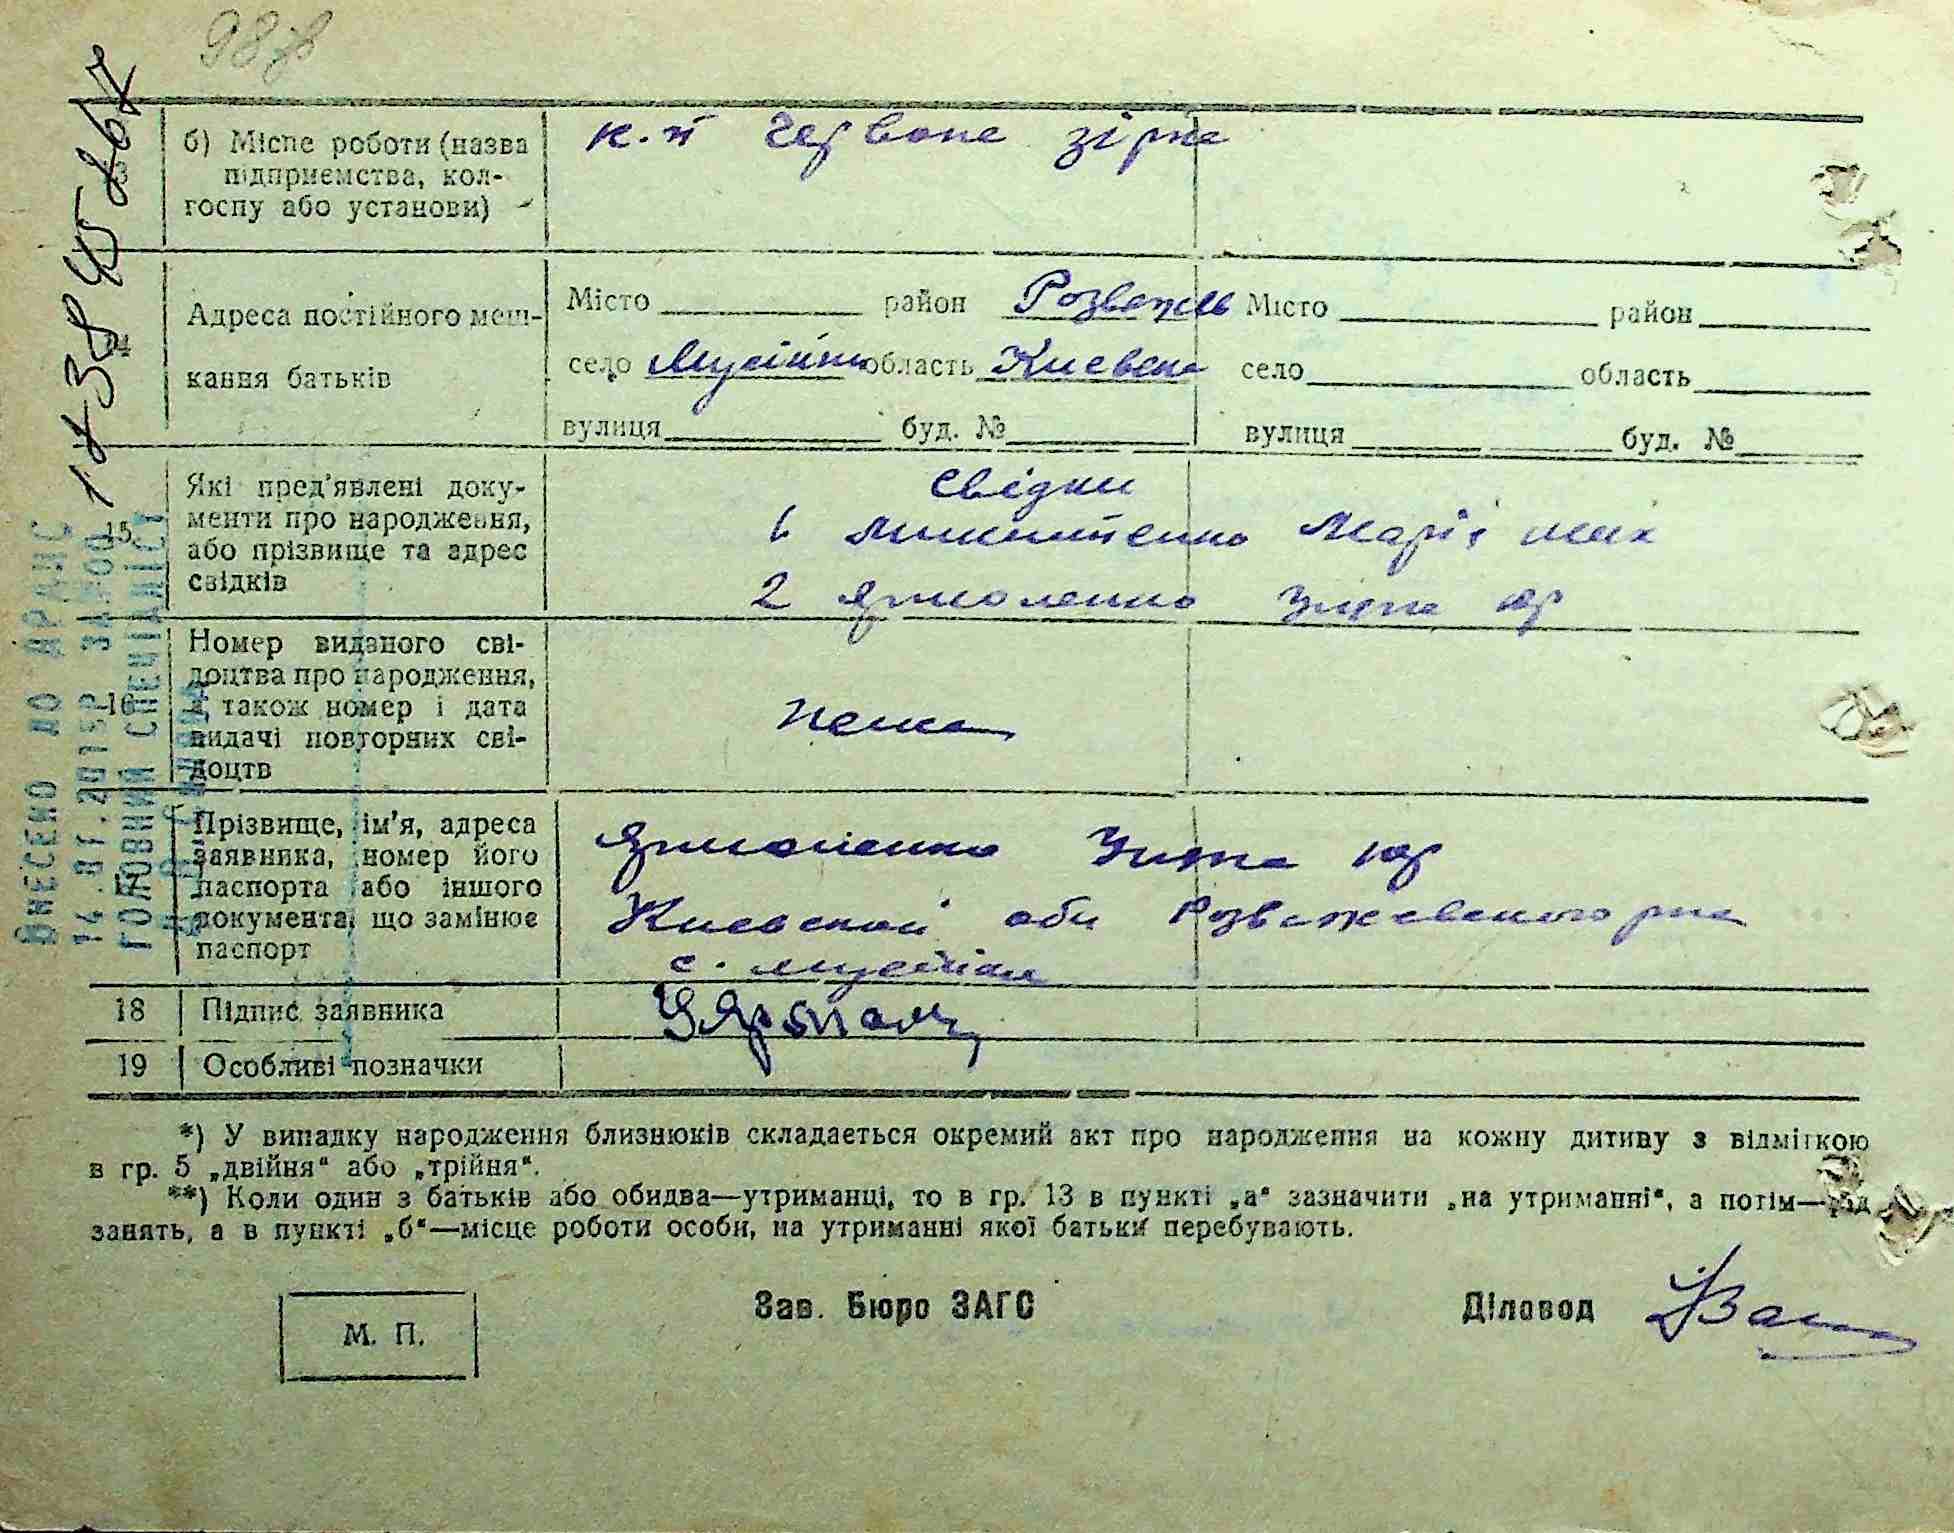 б) Місце роботи (назва
підприємства, кол-
госпу або установи)
к.п Червона зірка
14 Адреса постійного меш-
кання батьків
Місто район Розважів
село область Києвська
вулиця буд. №
Місто район
село область
вулиця буд. №
15 Які пред'явлені доку-
менти про народження,
або прізвище та адрес
свідків
Свідки
1 Марія мих
2 Ярмоленко юр
16 Номер виданого сві-
доцтва про народження,
а також номер і дата
видачі повторних сві-
доцтв
17 Прізвище, ім'я, адреса
заявника, номер його
паспорта або іншого
документа, що замінює
паспорт
Ярмоленко юр
Киевской обл Розважевского рна
с.
18 Підпис заявника
19 Особливі позначки
*) У випадку народження близнюків складається окремий акт про народження на кожну дитину з відміткою
в гр. 5 „двійня“ або „трійня“.
**) Коли один з батьків або обидва—утриманці, то в гр. 13 в пункті „а“ зазначити „на утриманні“, а потім—рід
занять, а в пункті „б“—місце роботи особи, на утриманні якої батьки перебувають.
М. П.
Зав. Бюро ЗАГС
Діловод
ВНЕСЕНО ДО ДРАЦС
ГОЛОВНИЙ СПЕЦІАЛІСТ